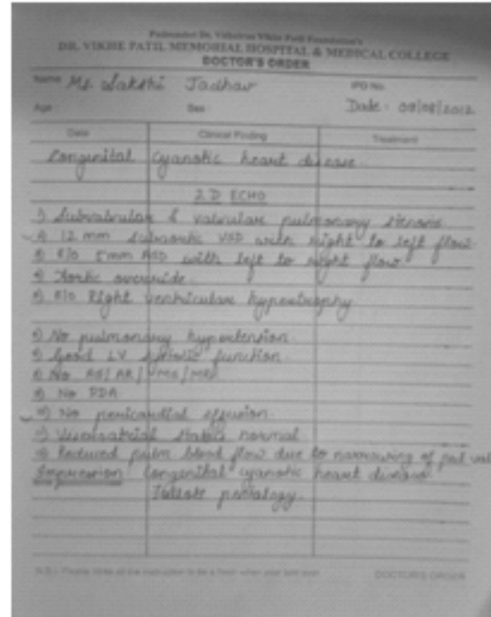 Padmashri Dr. Vithalrao Vikhe Patil Foundation's
DR. VIKHE PATIL MEMORIAL HOSPITAL & MEDICAL COLLEGE
DOCTOR'S ORDER
Name Ms. Sakshi Jadhav IPD No.
Age : Sex : Date : 09/08/2012
Date Clinical Finding Treatment
Congenital cyanotic heart disease.
2 D ECHO
1) Subvalvular & valvular pulmonary stenosis
12 mm subaortic VSD with right to left flow
E/o 5mm ASD with left to right flow
Aortic override.
E/o Right ventricular hypertrophy.
No pulmonary hypertension.
Good LV systolic function.
No AS/AR/
No PDA.
No pericardial effusion.
status normal
Reduced pulm blood flow due to narrowing of pul val
Impression Congenital cyanotic heart disease